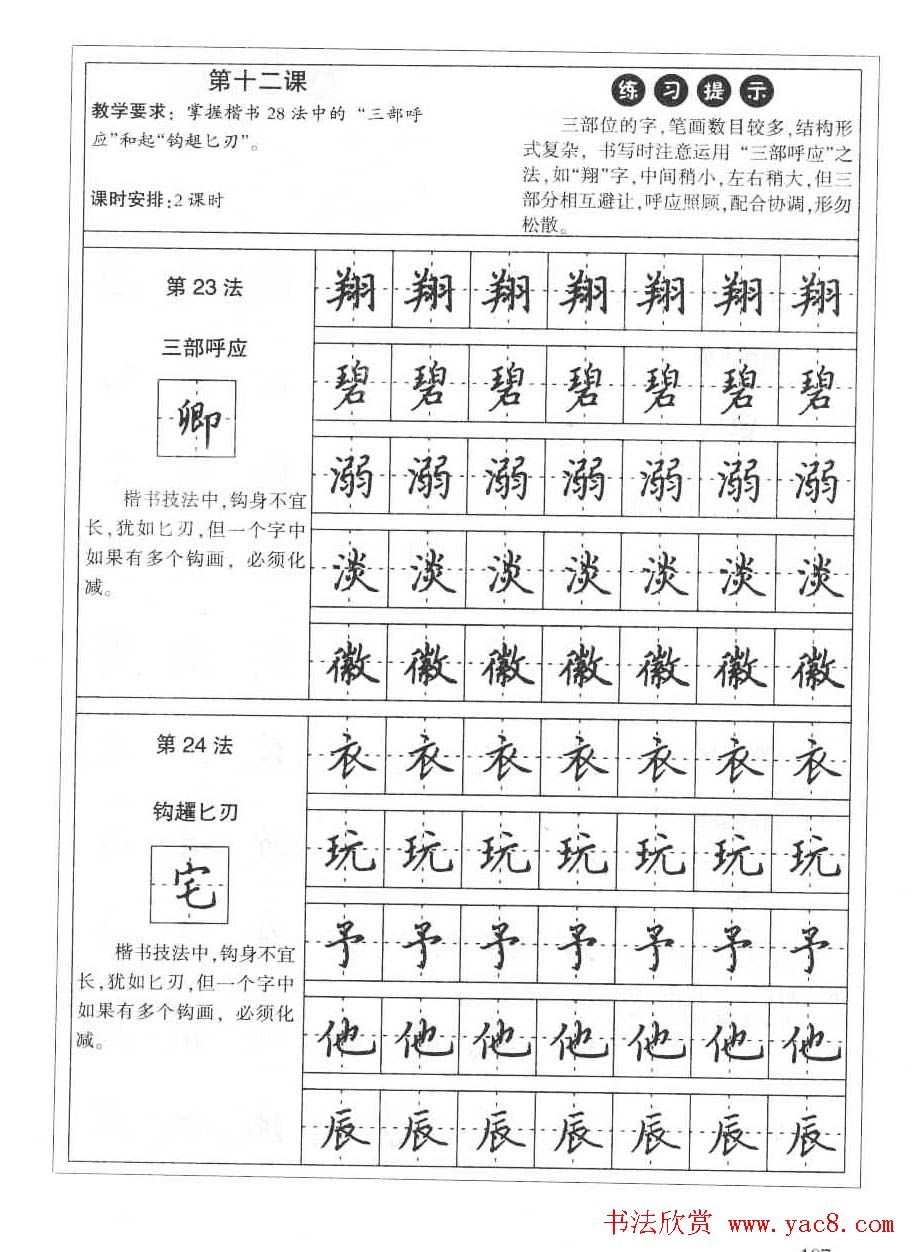 第十二课
教学要求：掌握楷书28法中的“三部呼
应”和起“钩趯匕刃”。
课时安排：2课时
练习提示
三部位的字，笔画数目较多，结构形
式复杂，书写时注意运用“三部呼应”之
法，如“翔”字，中间稍小，左右稍大，但三
部分相互避让，呼应照顾，配合协调，形勿
松散。
第23法
三部呼应
卿
楷书技法中，钩身不宜
长，犹如匕刃，但一个字中
如果有多个钩画，必须化
减。
翔翔翔翔翔翔翔
碧碧碧碧碧碧碧
溺溺溺溺溺溺溺
淡淡淡淡淡淡淡
徽徽徽徽徽徽徽
第24法
钩趯匕刃
宅
楷书技法中，钩身不宜
长，犹如匕刃，但一个字中
如果有多个钩画，必须化
减。
衣衣衣衣衣衣衣
玩玩玩玩玩玩玩
予予予予予予予
他他他他他他他
辰辰辰辰辰辰辰
书法欣赏 www.yac8.com